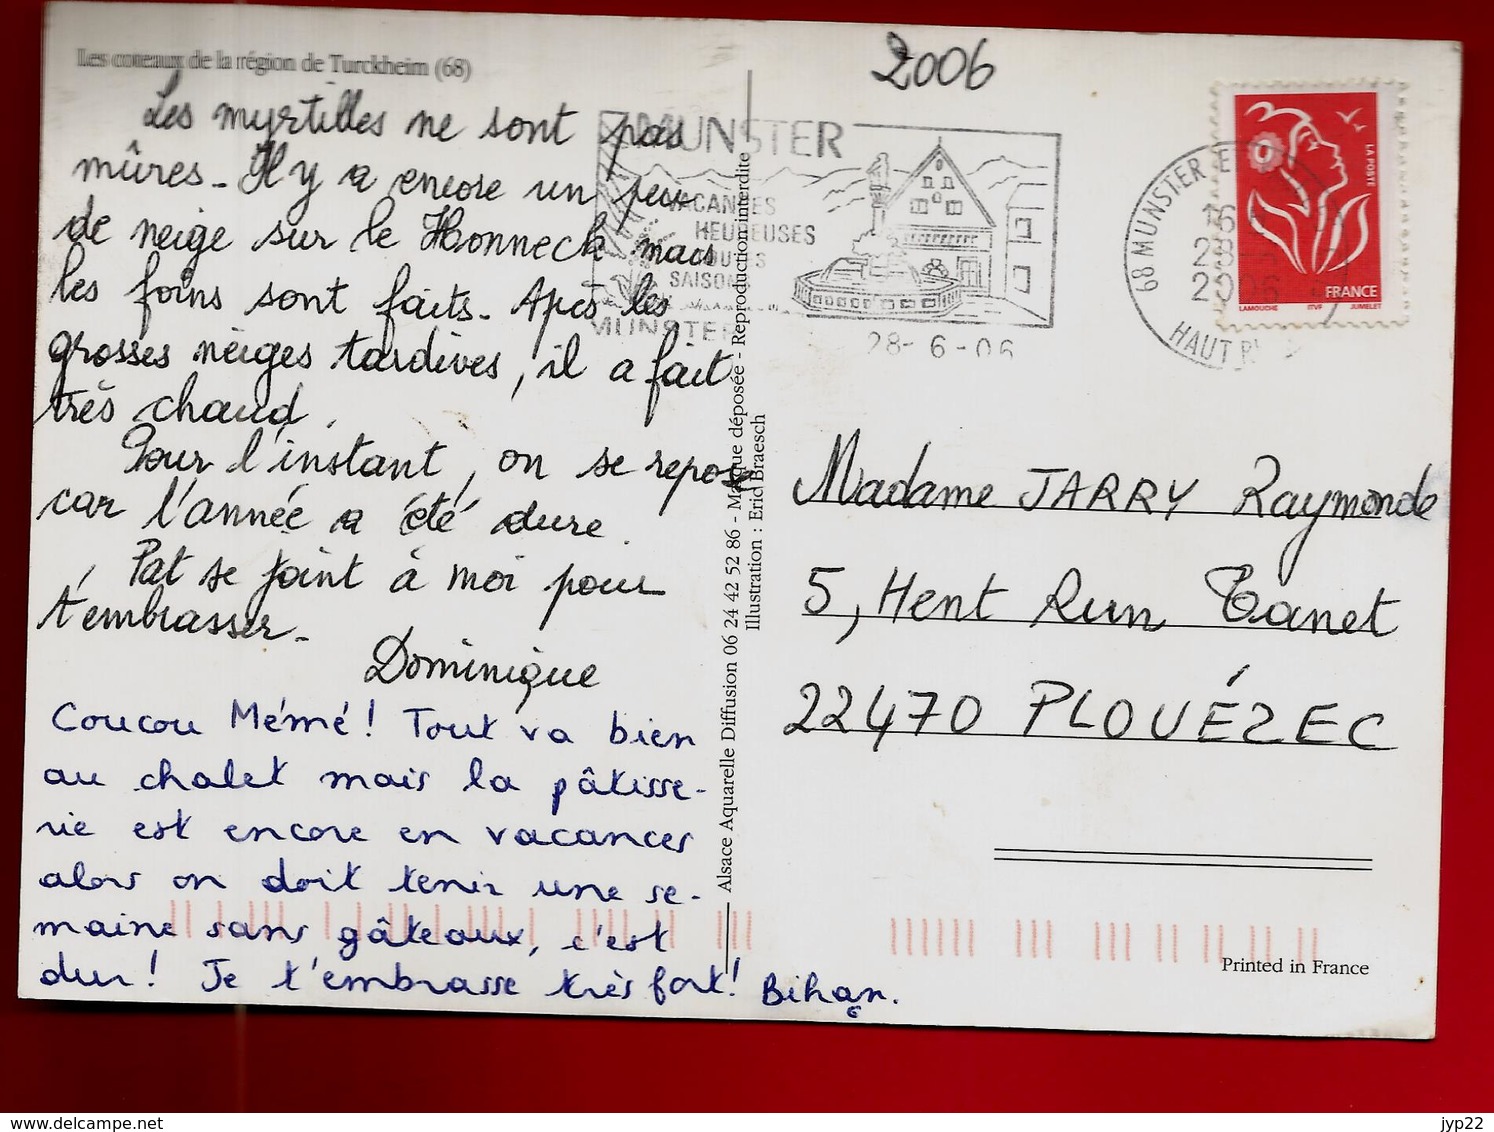 Les coteaux de la région de Turckheim (68)
2006
Les myrtilles ne sont pas
mûres. Il y a encore un peu
de neige sur le Honneck mais
les foins sont faits. Après les
grosses neiges tardives, il a fait
très chaud.
Pour l'instant, on se repose
car l'année a été dure.
Pat se joint à moi pour
t'embrasser.
Dominique
Coucou Mémé! Tout va bien
au chalet mais la pâtisse-
rie est encore en vacances
alors on doit tenir une se-
maine sans gâteaux, c'est
dur! Je t'embrasse très fort! Bihan.
Alsace Aquarelle Diffusion 06 24 42 52 86 - Marque déposée - Reproduction interdite
Illustration : Eric Braesch
MUNSTER
VACANCES
HEUREUSES
TOUTES
SAISONS
MUNSTER
28-6-06
68 MUNSTER
16
28
2006
HAUT RHIN
LA POSTE
FRANCE
LAMOUCHE ITVF JUMELET
Madame JARRY Raymonde
5, Hent Run Tanet
22470 PLOUÉZEC
Printed in France
delcampe.net
jyp22